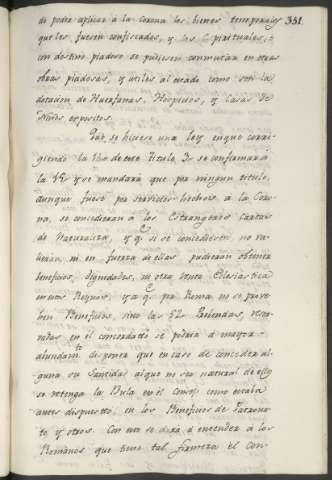 de poder aplicar à la corona los bienes temporales 331
que les fuesen confiscados, y los Espirituales, ò
con destino piadoso se pudiesen conmutar en otras
obras piadosas, y utiles al estado como son la
dotacion de Huerfanas, Hospicios, y Casas de
Niños expositos.
Que se hiciese una Ley en que corri
giendo la de este Titulo, se confirmara
la y se mandará que por ningun titulo,
aunque fuese por servicios hechos à la Coro
na, se concedieran à los Estrangeros Cartas
de Naturaleza, y q si se concediesen no va
liesen, ni en fuerza de ellas pudieran obtener
beneficios, dignidades, ni otra renta Eclesiastica
en estos Reynos; y a q por Roma no se provè
len Beneficios, sino las 52 Prebendas, reser
vadas en el concordato se podria à mayor
abundam.to disponer que en caso de conceder al
guna su Santidad al que no sea natural de ellos
se retenga la Bula en el Consejo como estaba
antes dispuesto, en los Beneficios de Patrona
to y otros. Con esto se dará à entender à los
Romanos que tiene tal firmeza el Con-